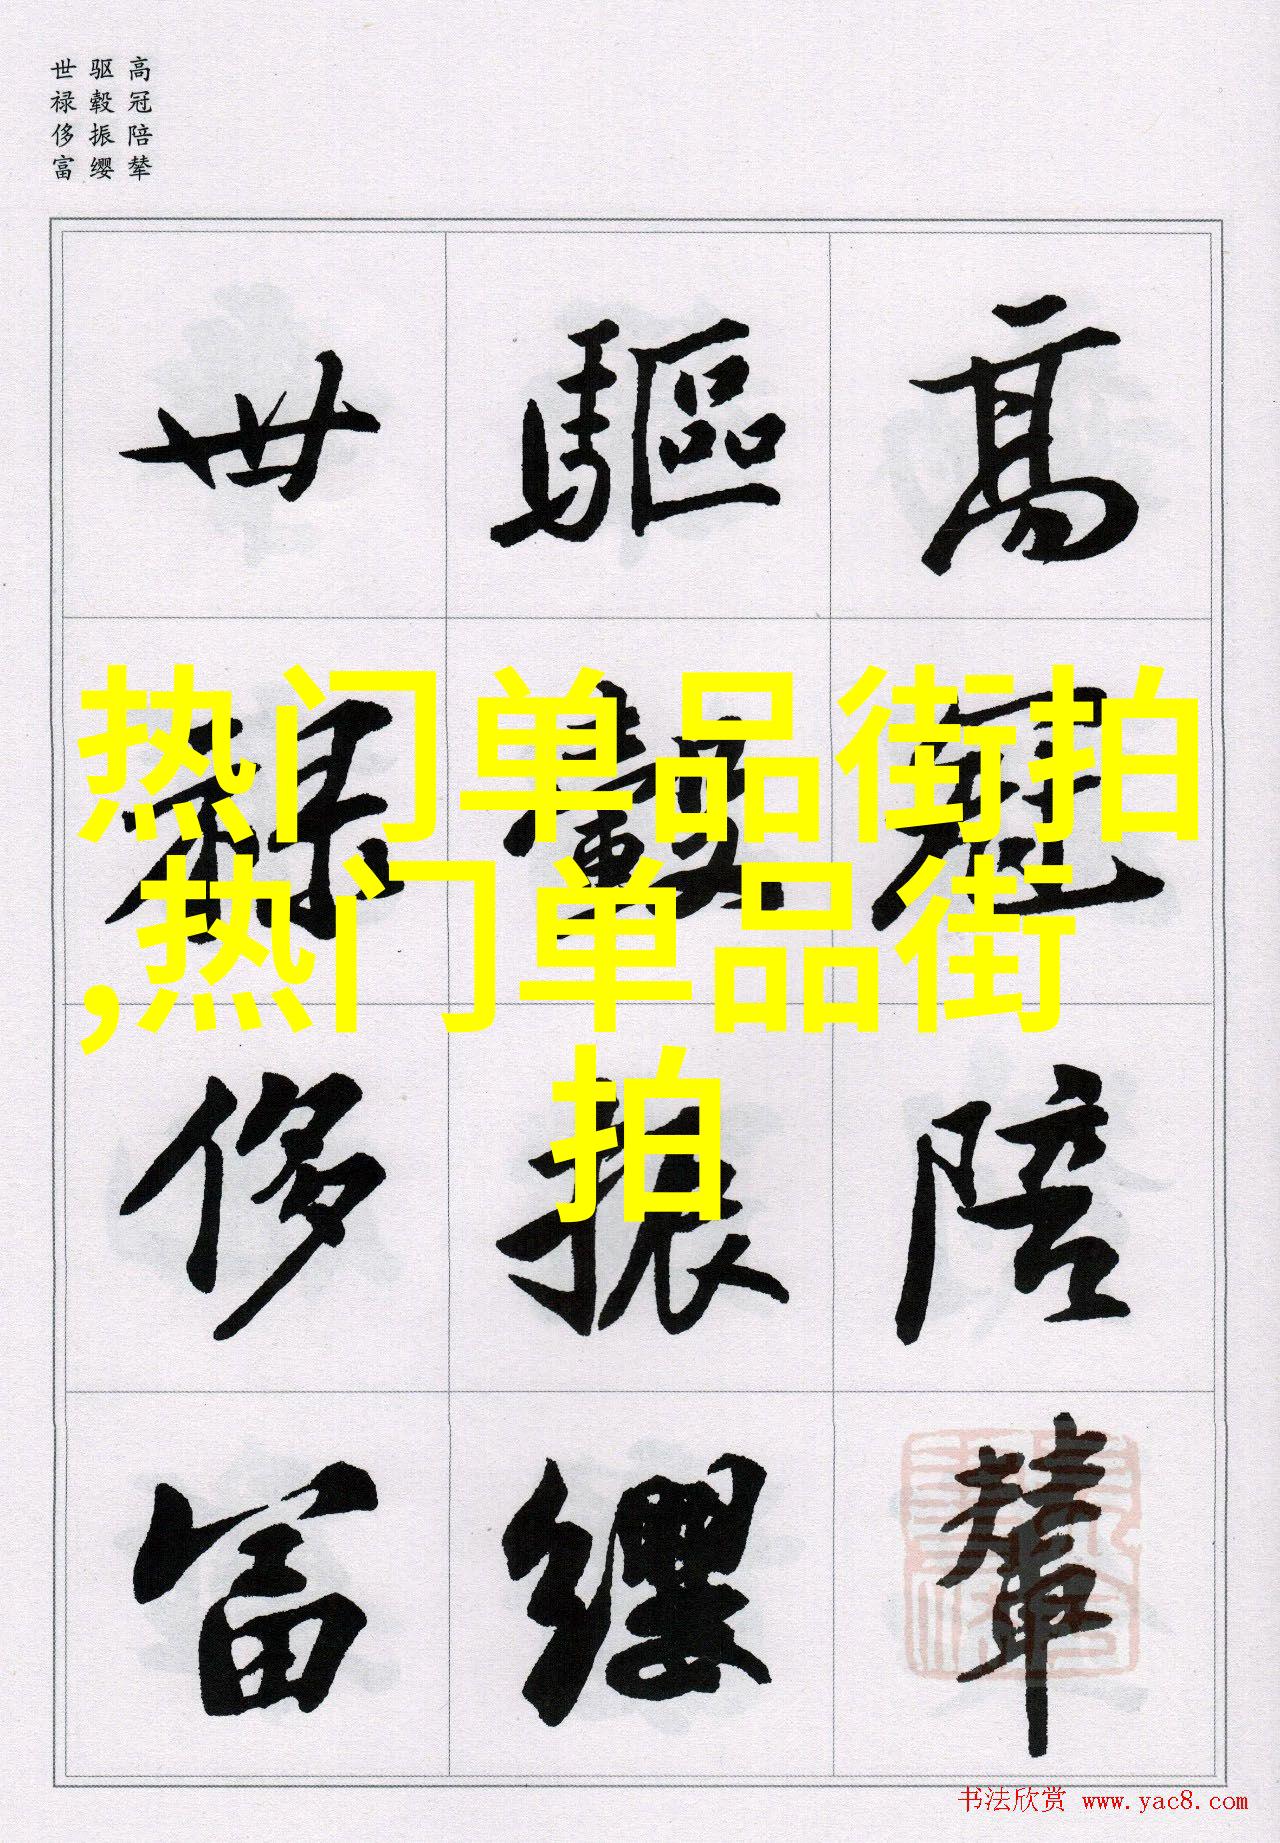 高冠陪辇
驱毂振缨
世禄侈富
高冠陪輦
驅轂振纓
世祿侈富
热门单品街拍
,热门单品街
拍
书法欣赏 www.yac8.com